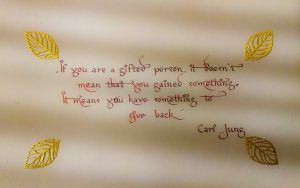 .If you are a gifted person, it doesn't
mean that you gained something.
It means you have something to
give back
Carl Jung